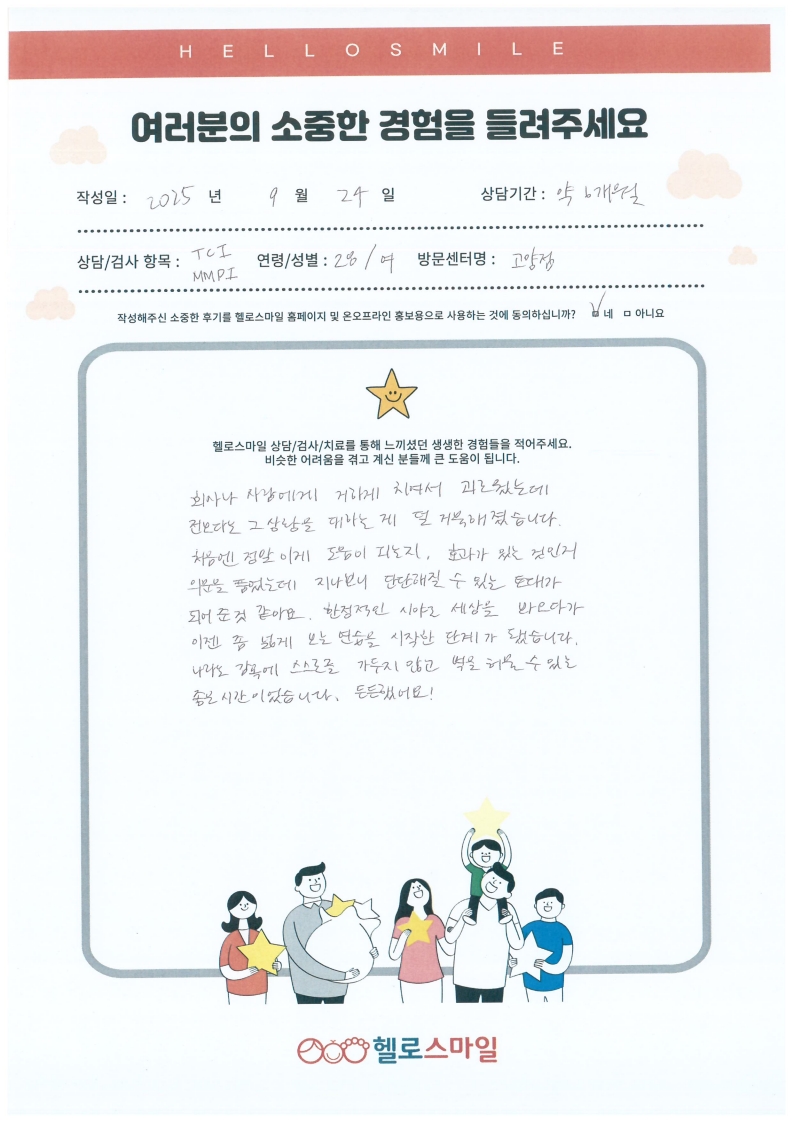 HELLOSMILE
여러분의 소중한 경험을 들려주세요
작성일 : 2025 년 9 월 24 일 상담기간 : 약 6개월
상담/검사 항목 : TCI MMPI 연령/성별 : 28 / 여 방문센터명 : 고양점
작성해주신 소중한 후기를 헬로스마일 홈페이지 및 온오프라인 홍보용으로 사용하는 것에 동의하십니까? ☑ 네 □ 아니요
헬로스마일 상담/검사/치료를 통해 느끼셨던 생생한 경험들을 적어주세요.
비슷한 어려움을 겪고 계신 분들께 큰 도움이 됩니다.
회사나 사람에게 거하게 치여서 괴로웠는데
전보다는 그 상황을 대하는 게 덜 거북해졌습니다.
처음엔 정말 이게 도움이 되는지, 효과가 있는 것인지
의문을 품었는데 지나보니 단단해질 수 있는 토대가
되어 준것 같아요. 한정적인 시야로 세상을 바라보다가
이젠 좀 넓게 보는 연습을 시작한 단계가 됐습니다.
나라는 감옥에 스스로를 가두지 않고 벽을 허물 수 있는
좋은 시간이었습니다. 든든했어요!
헬로스마일